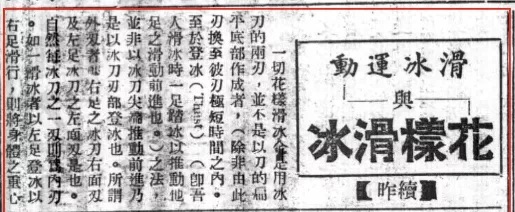 滑冰運動
與
花樣滑冰
【續昨】
一切花樣滑冰全是用冰
刀的兩刃，並不是以刀的扁
平底部作成者，（除非由此
刃換至彼刃極短時間之內。
至於登冰（Thrust）（卽吾
人滑冰時一足踏冰以推動他
足之滑動前進也。）之法，
並非以冰刀尖端推動前進乃
是以冰刀刃部登冰也。所謂
外刃者 右足之冰刀右面刃
及左足冰刀之左面刃是也。
自然每冰刀之 一刃則爲內刃
。如一滑冰者以左足登冰以
右足滑行，則將身體之重心